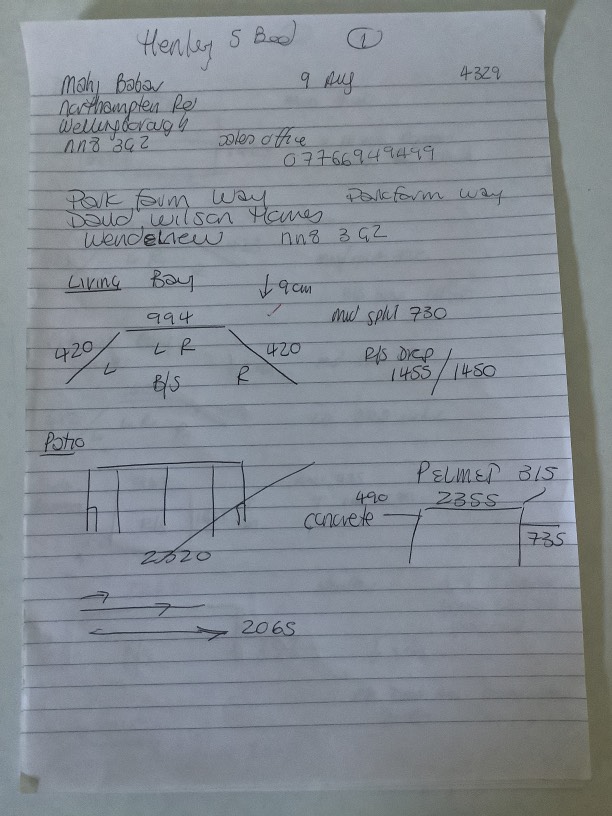 Henley 5 Bed 1
Mahj Babar 9 Aug 4329
Northampton Rd
Wellingborough
NN8 3G2 sales office
07766949499
Park farm Way Park farm way
David Wilson Homes
NN8 3G2
Living Bay ↓ 9cm
994 mid split 730
420 L R 420 R/S Drop
L B/S R 1455/1450
Patio
PELMET 315
490 2355
concrete 735
2520
2065